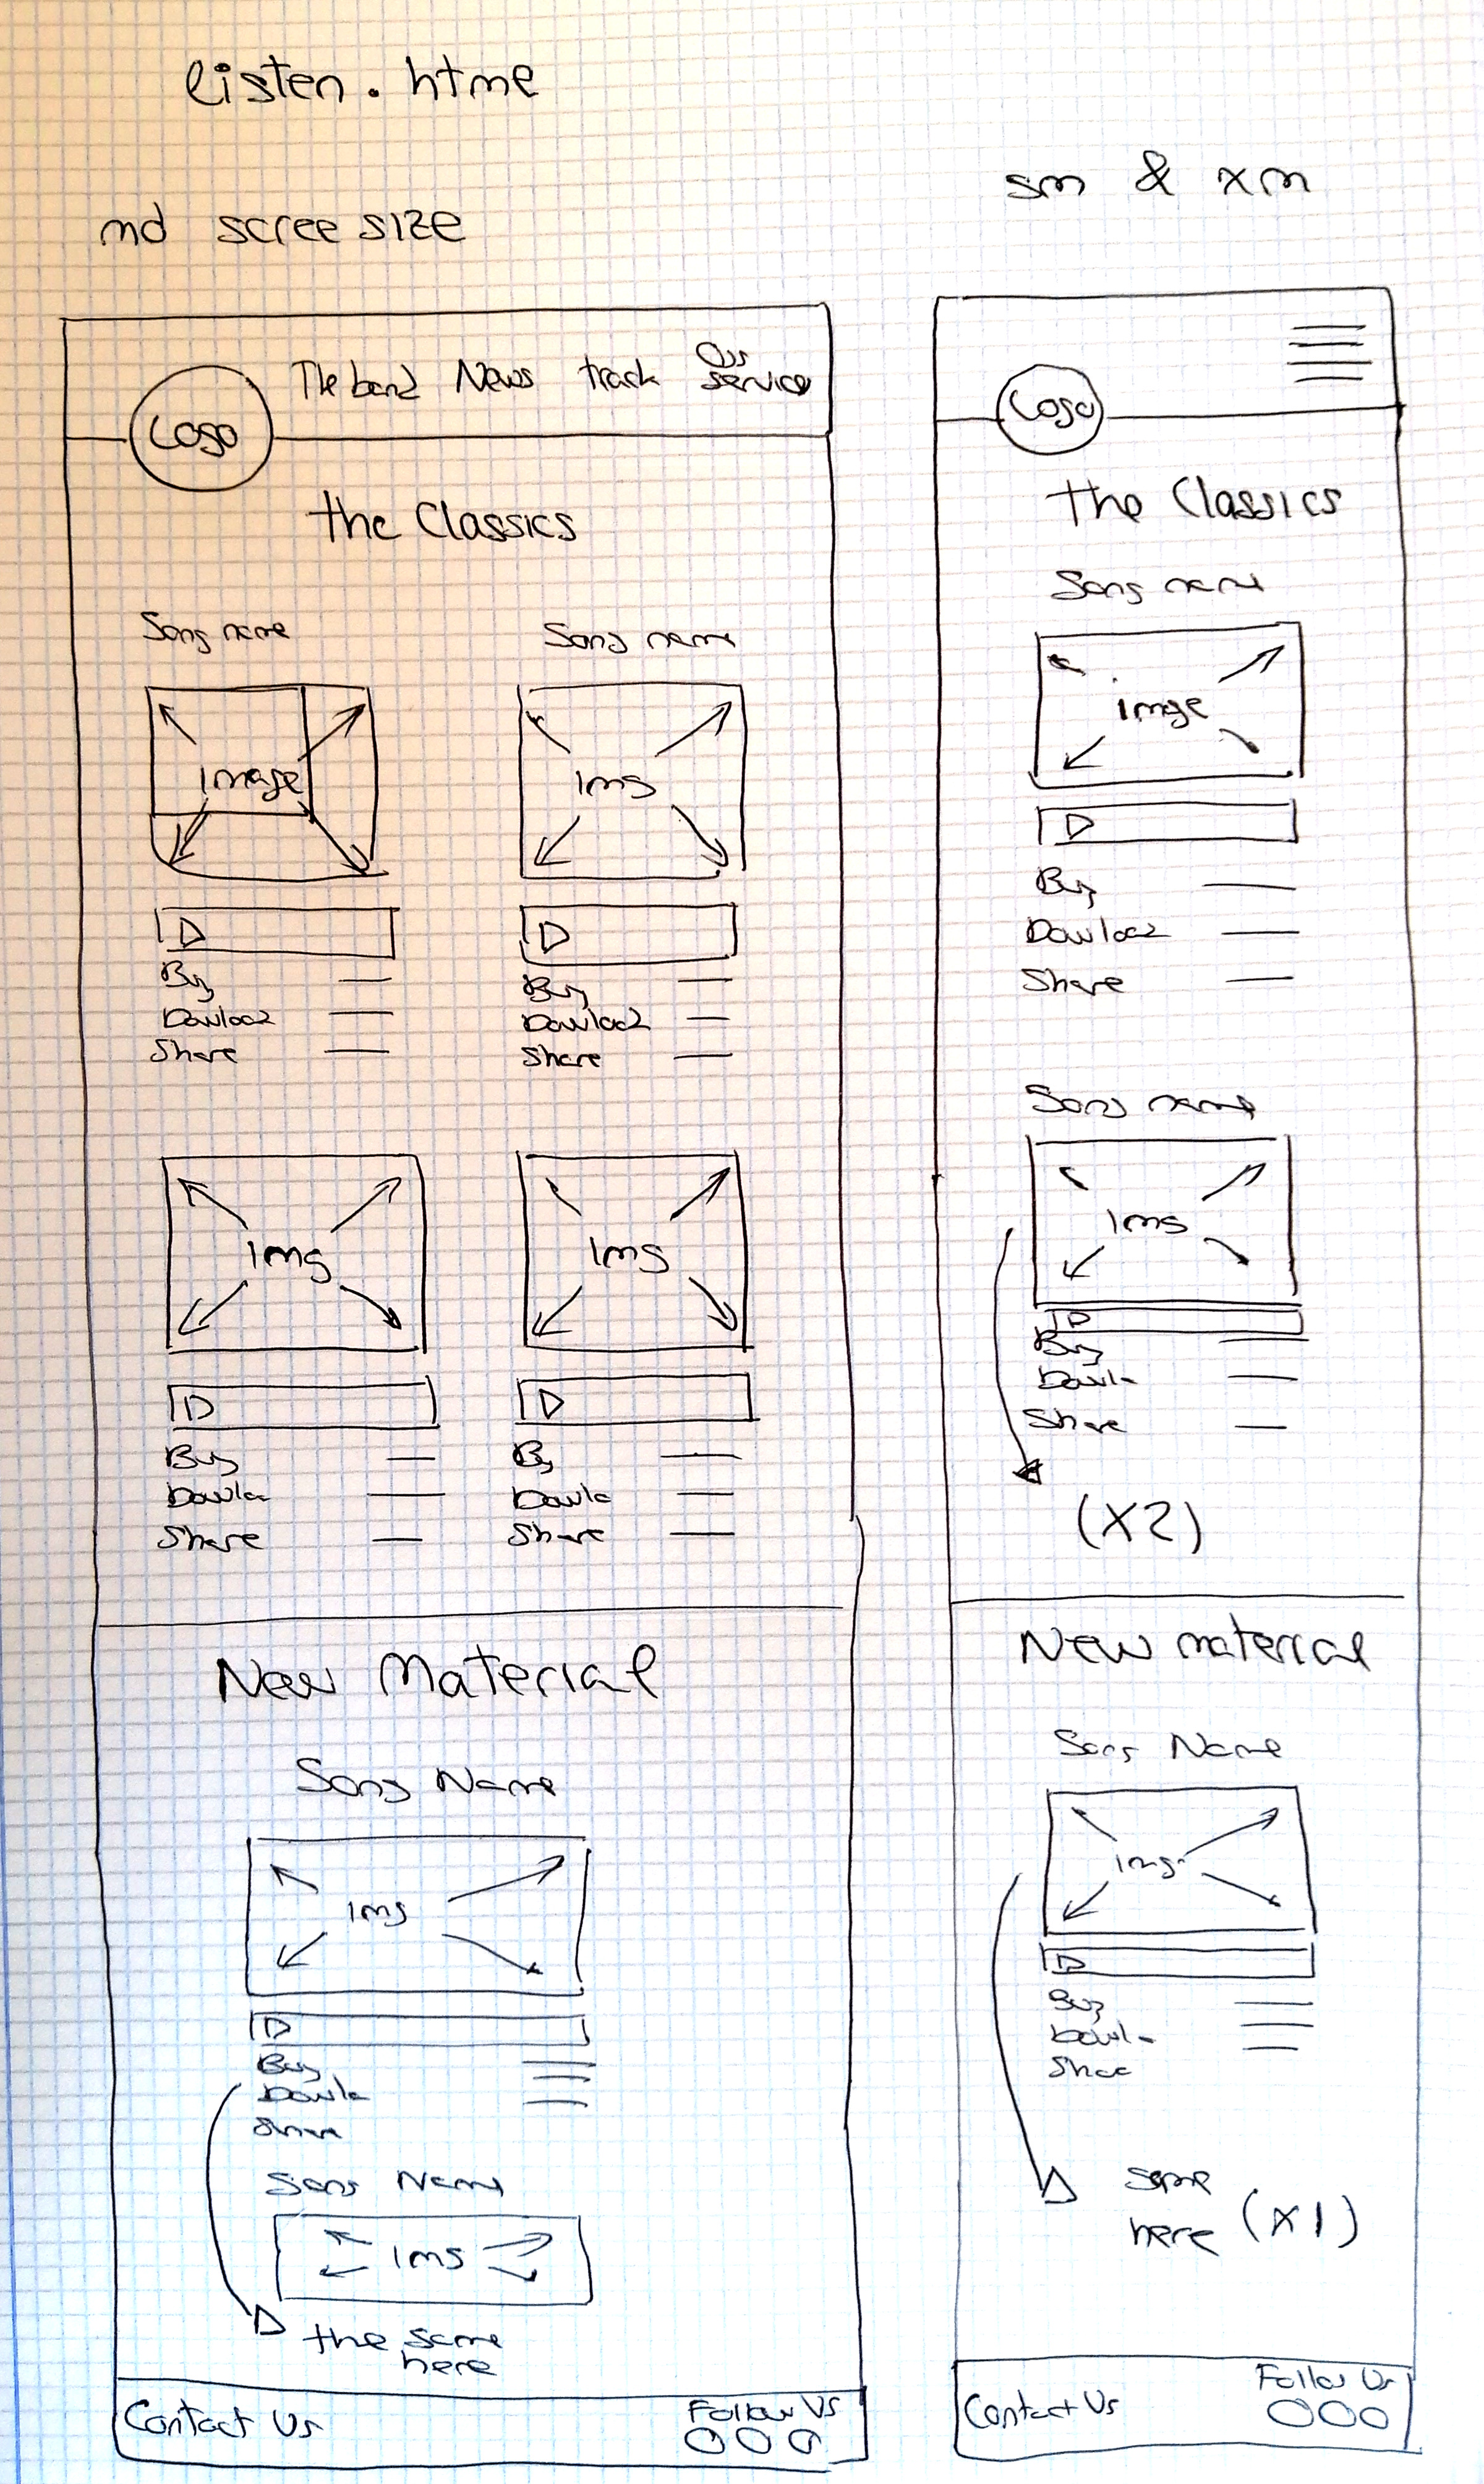 listen.html
sm & xm
md scree size
The band News track Our service
Logo
the Classics
Song name Song name
Image Img
Buy Buy
Dowload Dowload
Share Share
Img Img
Buy By
Dowlo Dowlo
Share Share
New Material
Song Name
Img
Buy
Dowlo
Share
Song Name
Img
the same
here
Contact Us
Follow Us
Logo
the Classics
Song name
Image
Buy
Dowload
Share
Song name
Img
Buy
Dowlo
Share
(x2)
New material
Song Name
Img
Buy
Dowlo
Share
same
here (x1)
Contact Us
Follow Us